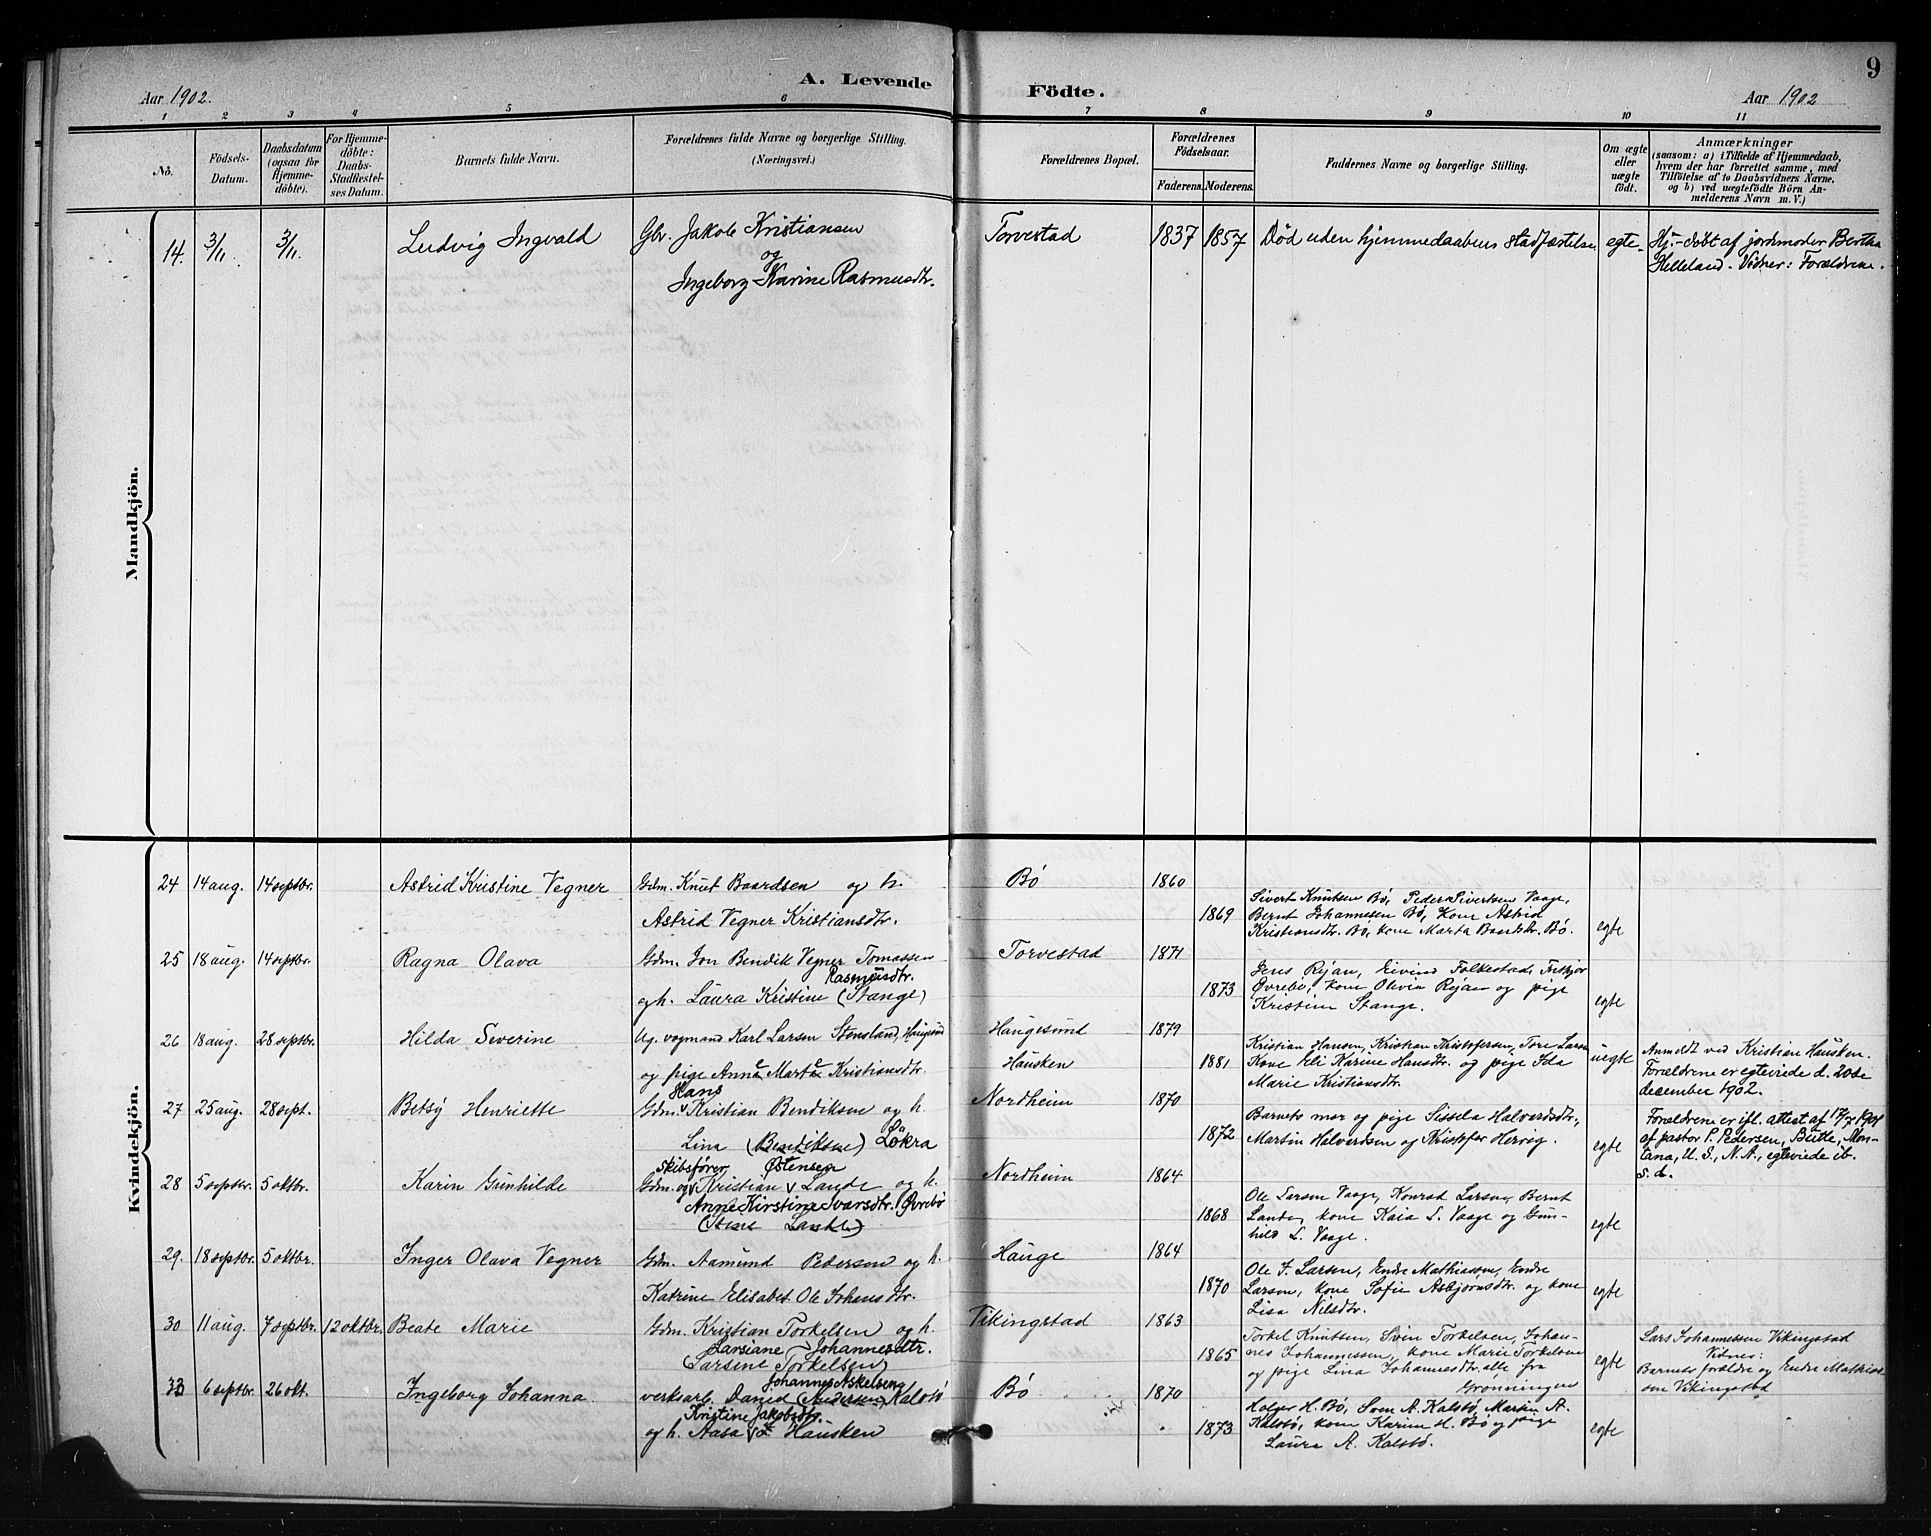 9
A. Levende Födte.
Aar 1902.
Aar 1902
1 2 3 4 5 6 7 8 9 10 11
No.
Födsels-Datum.
Daabsdatum (ogsaa for Hjemme-döbte).
For Hjemme-döbte: Daabs-Stadfæstel-ses Datum.
Barnets fulde Navn.
Forældrenes fulde Navne og borgerlige Stilling.
(Næringsvei.)
Forældrenes Bopæl.
Forældrenes Födselsaar.
Faderens. Moderens.
Faddernes Navne og borgerlige Stilling.
Om ægte eller uægte født.
Anmærkninger
(saasom: a) i Tilfælde af Hjemmedaab,
hvem der har forrettet samme, med
Tilföielse af to Daabsvidners Navne,
og b) ved uægtefödte Börn An-
melderens Navn m. V.)
Mandkjön.
14. 3/11. 3/11. Ludvig Ingvald Gbr. Jakob Kristiansen Torvestad 1837 1857 Död uden hjemmedaabens stadfæstelse egte. Hj.-døbt af jordmoder Bertha
og Helleland. Vidner: Forældrene.
Ingeborg Karine Rasmusdtr.
Kvindekjön.
24 14 aug. 14 septbr. Astrid Kristine Vegner Gdm. Knut Baardsen og h. Bö 1860
Sivert Knutsen Bö, Peder Sivertsen Vaage,
Astrid Vegner Kristiansdtr. 1869 Bernt Johannesen Bö, kone Astrid
Kristiansdtr. Bö, kone Marta Baardsdtr. Bö. egte
25 18 aug. 14 septbr. Ragna Olava Gdm. Jon Bendik Vegner Tomassen Torvestad 1871
Rasmusdtr.
og h. Laura Kristine (Stange) 1873
Jens Ryan, Eivind Falkestad,
Övrebö, kone Olivia Ryan og pige
Kristine Stange. egte
26 18 aug. 28 septbr. Hilda Severine Ug. vogmand Karl Larsen Stensland, Haugesund Haugesund 1879
og pige Anne Marte Kristiansdtr. Hausken 1881
Kristian Hansen, Kristian Kristofersen, Tore Larsen
Kone Eli Karine Hansdtr. og pige Ida
Marie Kristiansdtr. uegte
Anmeldt ved Kristian Hausken.
Forældrene er egteviede d. 20de
december 1902.
27 25 aug. 28 sept. Betsy Henriette Gdm. Kristian Bendiksen og h. Nordheim 1870
Hans
Lina (Bendiksen) Lökra 1872
Barnets mor og pige Sissela Halvardsdtr.,
Martin Halvardsen og Kristoffer Hervig. egte
Forældrene er ifl. attest af 17/7 1901
af pastor P. Pedersen, Butte, Mon-
tana, U. S., N. A., egteviede ib.
s. d.
28 5 septbr. 5 oktbr. Karin Gunhilde Gdm. og Kristian Lande og h. Nordheim 1864
Skibsförer Östensen
Anne Kirstine Ivarsdtr. Övrebö
(Stene Lande) 1868
Ole Larsen Vaage, Konrad Larsen, Bernt
Lande, kone Kaia L. Vaage og Gun-
hild L. Vaage. egte
29. 18 septbr. 5 oktbr. Inger Olava Vegner Gdm. Aamund Pedersen og h. Hauge 1864
Katrine Elisabet Ole Johansdtr. 1870
Ole J. Larsen, Endre Mathiassen, Endre
Larsen, kone Sofie Asbjørnsdtr. og kone
Lisa Nilsdtr. egte
30 11 aug. 7 septbr. 12 oktbr. Beate Marie Gdm. Kristian Torkelsen og h. Vikingstad 1863
Larsiane Johannesdtr.
(Larsine Torkelsen) 1865
Torkel Knutsen, Sven Torkelsen, Johan-
nes Johannessen, kone Marie Torkelsen
og pige Lina Johannesdtr. alle fra
Grønningen egte
Lars Johannessen Vikingstad
Vidner:
Barnets forældre og Endre Mathias-
sen Vikingstad
33 6 septbr. 26 okt. Ingeborg Johanna verksarb. David (Andersen) Kalstö Bö 1870
Johannes Askelsen
Kristine Jakobsdtr.
og h. Aasa Hausken 1873
Holger H. Bö, Sven A. Kalstö, Martin A.
Kalstö, kone Karine H. Bö og pige
Laura A. Kalstö. egte